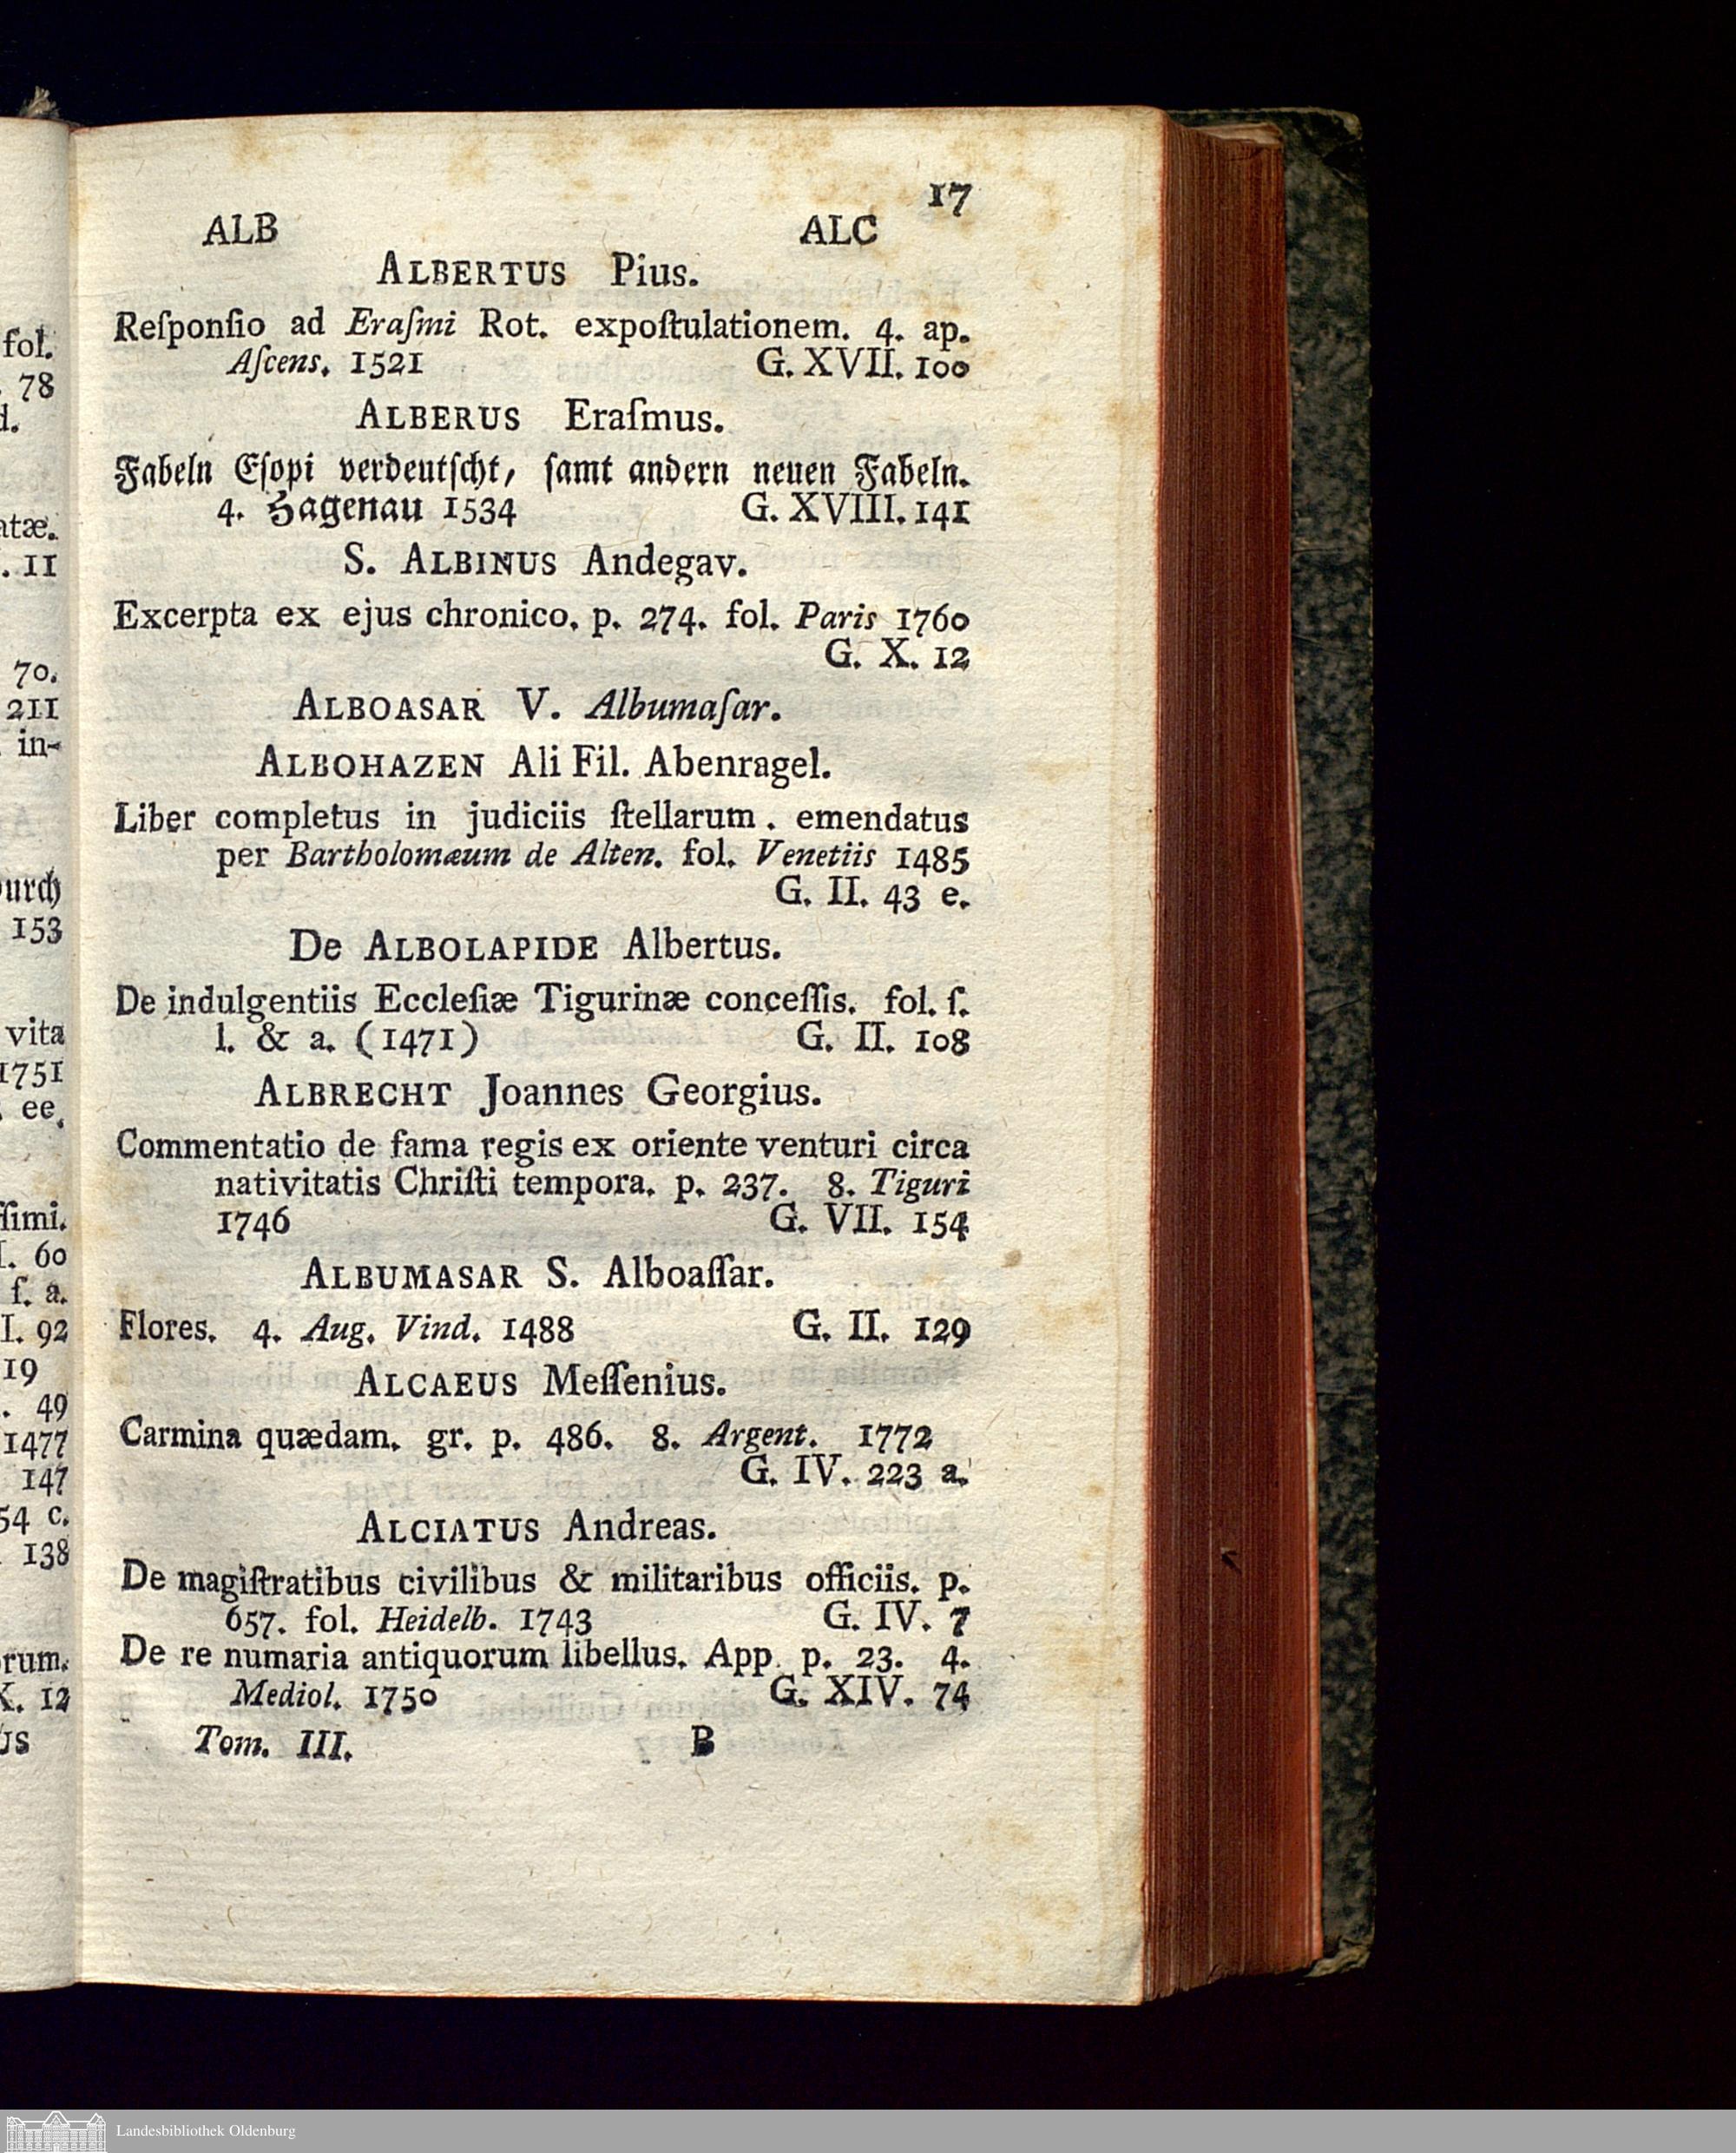 fol.
78
d.
atæ.
. 11
70.
211
in-
durch
153
vita
1751
ee.
ſſimi.
I. 60
ſ. a.
I. 92
19
. 49
1477
147
54 c.
138
orum.
X. 12
US
17
ALB ALC
ALBERTUS Pius.
Reſponſio ad Eraſmi Rot. expoſtulationem. 4. ap.
Aſcens. 1521 G. XVII. 100
ALBERUS Eraſmus.
Fabeln Eſopi verdeutſcht, ſamt andern neuen Fabeln.
4. Hagenau 1534 G. XVIII. 141
S. ALBINUS Andegav.
Excerpta ex ejus chronico. p. 274. fol. Paris 1760
G. X. 12
ALBOASAR V. Albumaſar.
ALBOHAZEN Ali Fil. Abenragel.
Liber completus in judiciis ſtellarum. emendatus
per Bartholomæum de Alten. fol. Venetiis 1485
G. II. 43 e.
De ALBOLAPIDE Albertus.
De indulgentiis Eccleſiæ Tigurinæ conceſſis. fol. ſ.
l. & a. (1471) G. II. 108
ALBRECHT Joannes Georgius.
Commentatio de fama regis ex oriente venturi circa
nativitatis Chriſti tempora. p. 237. 8. Tiguri
1746 G. VII. 154
ALBUMASAR S. Alboaſſar.
Flores. 4. Aug. Vind. 1488 G. II. 129
ALCAEUS Meſſenius.
Carmina quædam. gr. p. 486. 8. Argent. 1772
G. IV. 223 a.
ALCIATUS Andreas.
De magiſtratibus civilibus & militaribus officiis. p.
657. fol. Heidelb. 1743 G. IV. 7
De re numaria antiquorum libellus. App. p. 23. 4.
Mediol. 1750 G. XIV. 74
Tom. III. B
Landesbibliothek Oldenburg